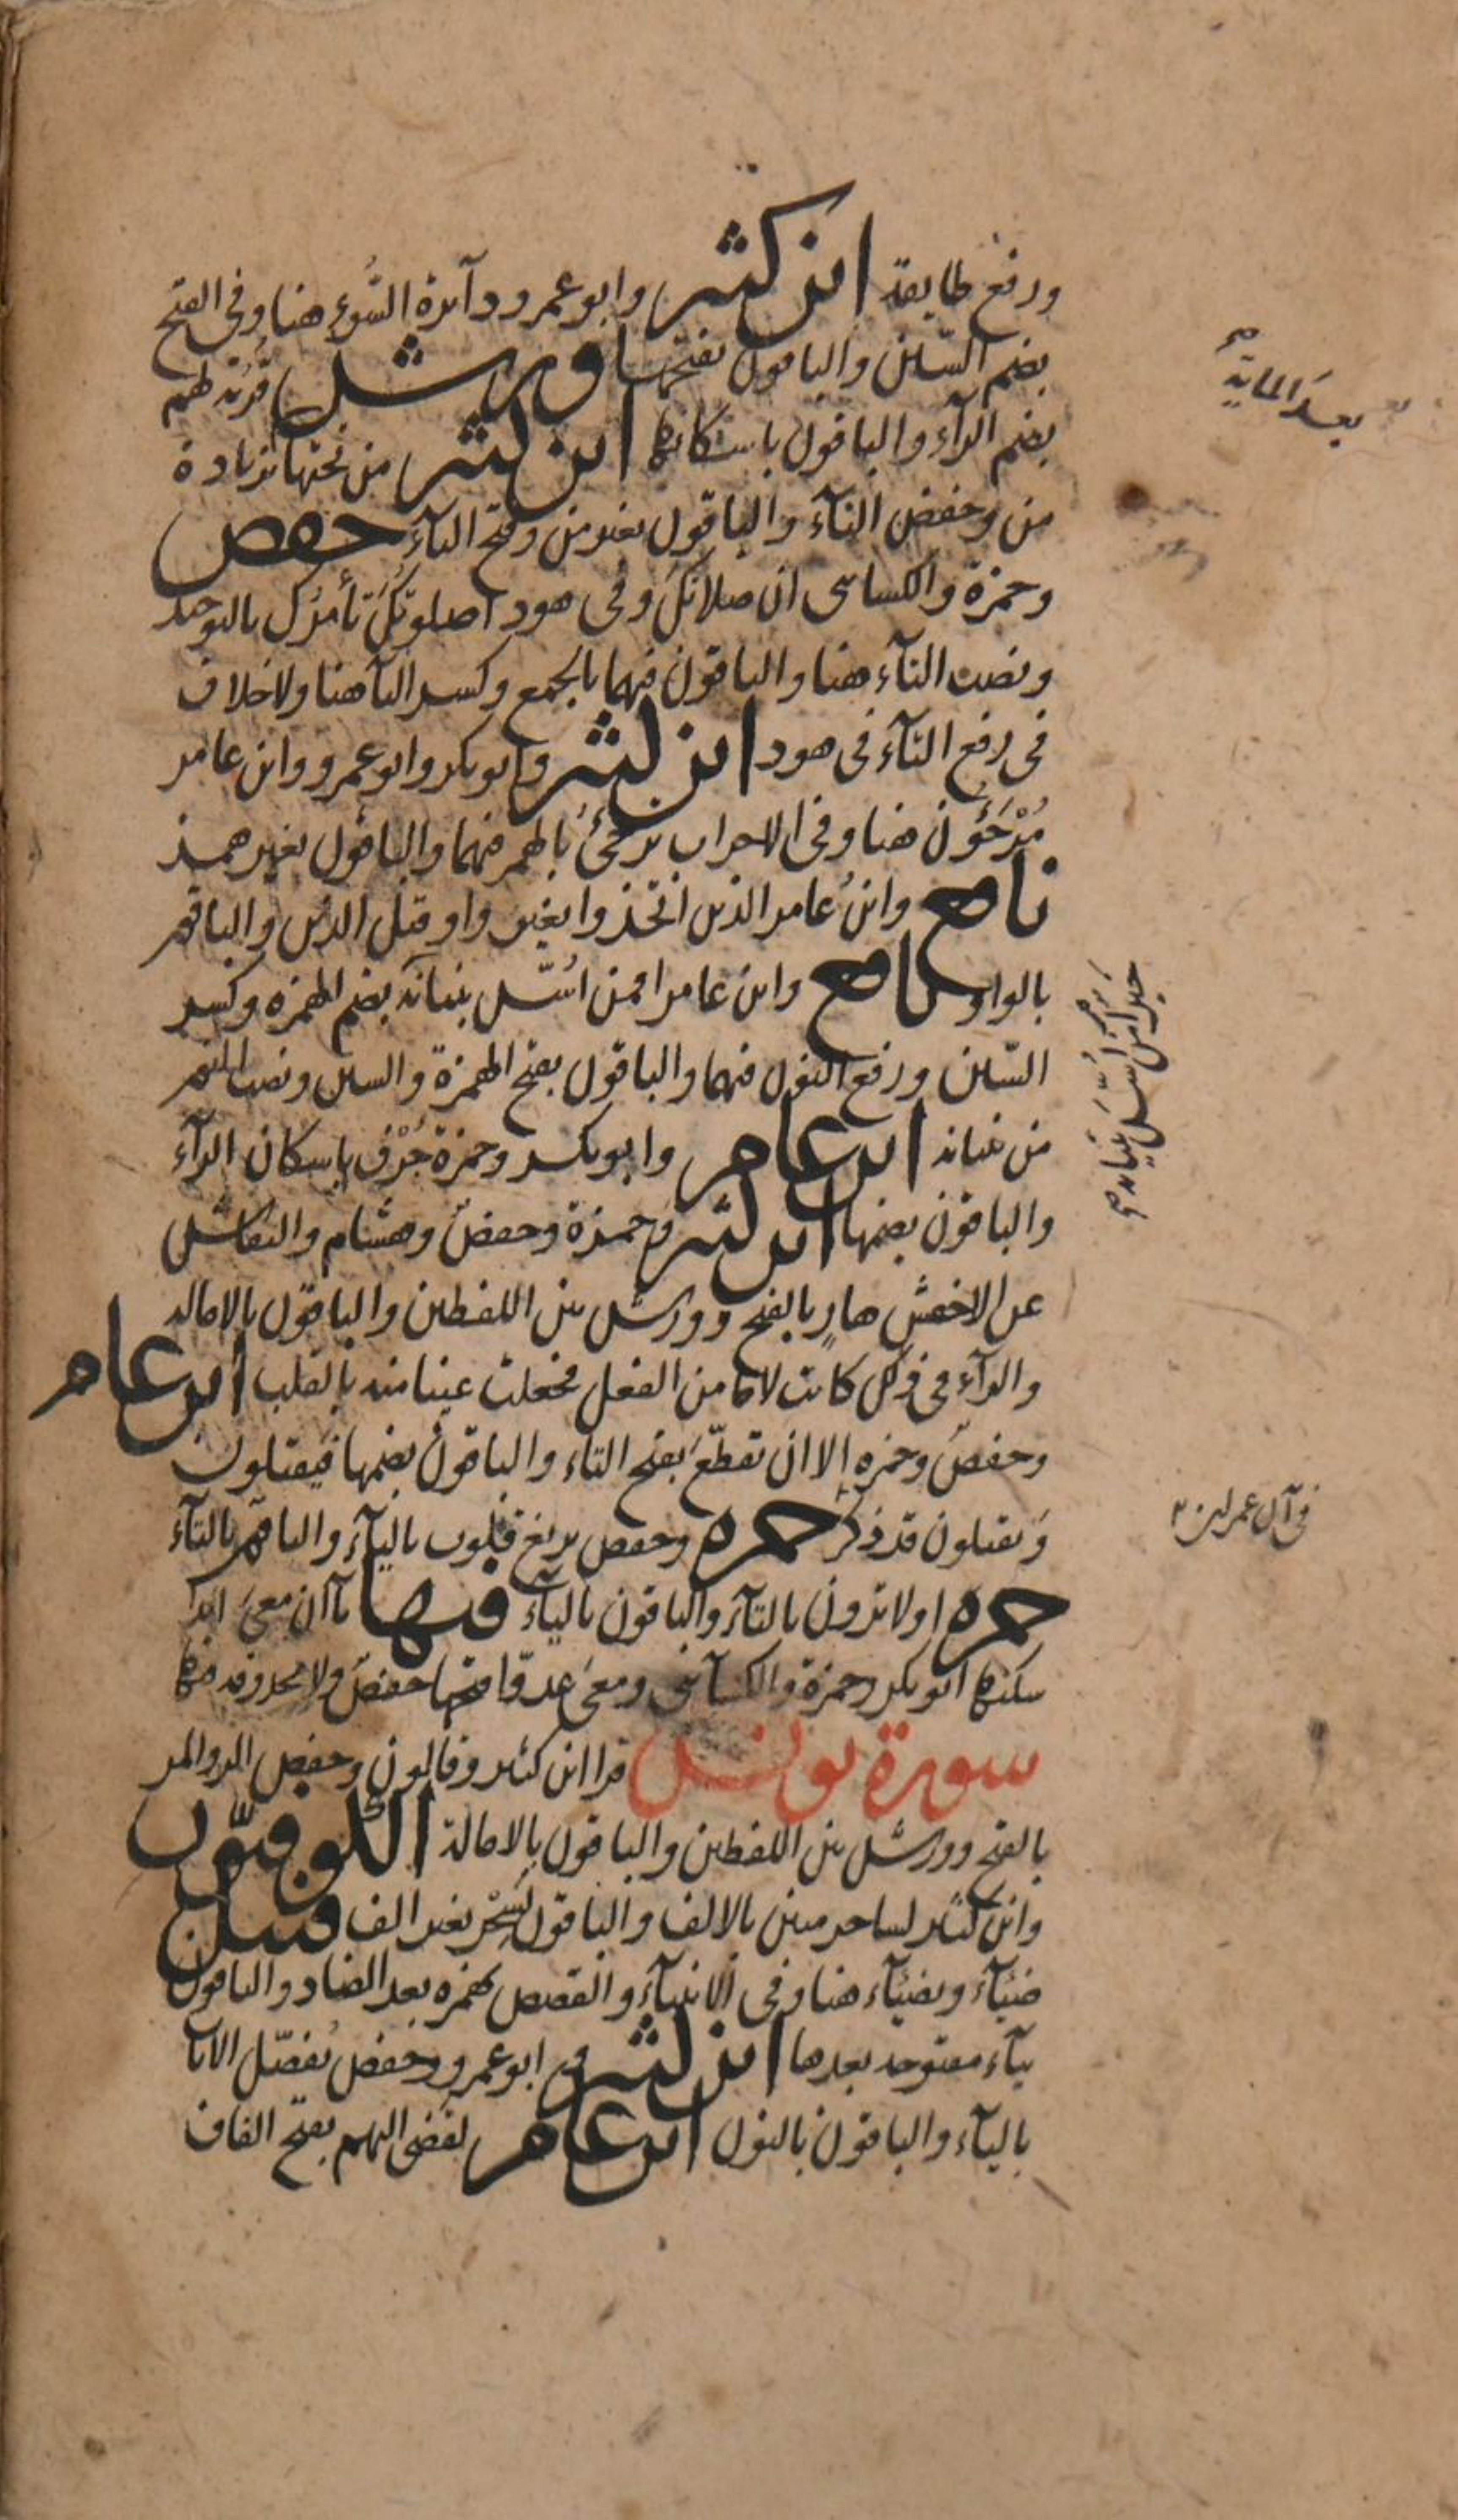 ورفع طايفة ابن كثير وابو عمرو دآئرة السُّوء هنا وفى الفتح
بضم السّين والباقون بفتحها ورش قُرُبة لهم
بضم الرآء والباقون باسكانها ابن كثير من تحتها بزيادة
من وخفض التآء والباقون بغير من وفتح التآء حفص
وحمزة والكسائى ان صلاتك وفى هود اصلوتك تأمرك بالتوحيد
ونصب التآء هنا والباقون فيهما بالجمع وكسر التآ هنا ولا خلاف
فى رفع التآء فى هود ابن كثير وابو بكر وابو عمرو وابن عامر
مُرْجَؤُن هنا وفى الاحزاب ترجئُ بالهمز فيهما والباقون بغير همز
نافع وابن عامر الذين اتّخذوا بغير واو قبل الذين والباقون
بالواو نافع وابن عامر افمن اُسّس بنيانه بضم الهمزه وكسر
السّين ورفع النون فيهما والباقون بفتح الهمزة والسين ونصب النون
من بنيانه ابن عامر وابو بكر وحمزة جُرْف باسكان الرآء
والباقون بضمها ابن كثير وحمزة وحفص وهشام والنقاش
عن الاخفش هارٍ بالفتح وورش بين اللفظين والباقون بالاماله
والرآء فى ذلك كانت لاما من الفعل فجعلت عينا منه بالقلب ابن عامر
وحفص وحمزه الا ان تقطّع بفتح التاء والباقون بضمها فيقتلون
ويقتلون قد ذكر حمزه وحفص يزيغ قلوب باليآء والباقون بالتآء
حمزه اولا ترون بالتآء والباقون باليآء فيها يآان معى ابدا
سكنها ابو بكر وحمزة والكسآئى ومعى عدوّا فتحها حفص ولا محذوفه فيها
سورة يونس قرا ابن كثير وقالون وحفص الر والمر
بالفتح وورش بين اللفظين والباقون بالامالة الكوفيّون
وابن كثير لساحر مبين بالالف والباقون لسِحْر بغير الف قنبل
ضئآء وبضئآء هنا وفى الانبيآء والقصص بهمزه بعد الضاد والباقون
بيآء مفتوحه بعدها ابن كثير وابو عمرو وحفص يُفصّل الايات
باليآء والباقون بالنون ابن عامر لقضى اليهم بفتح القاف
بعد الماية
خير امن اُسّس بنيانه
فى آل عمران